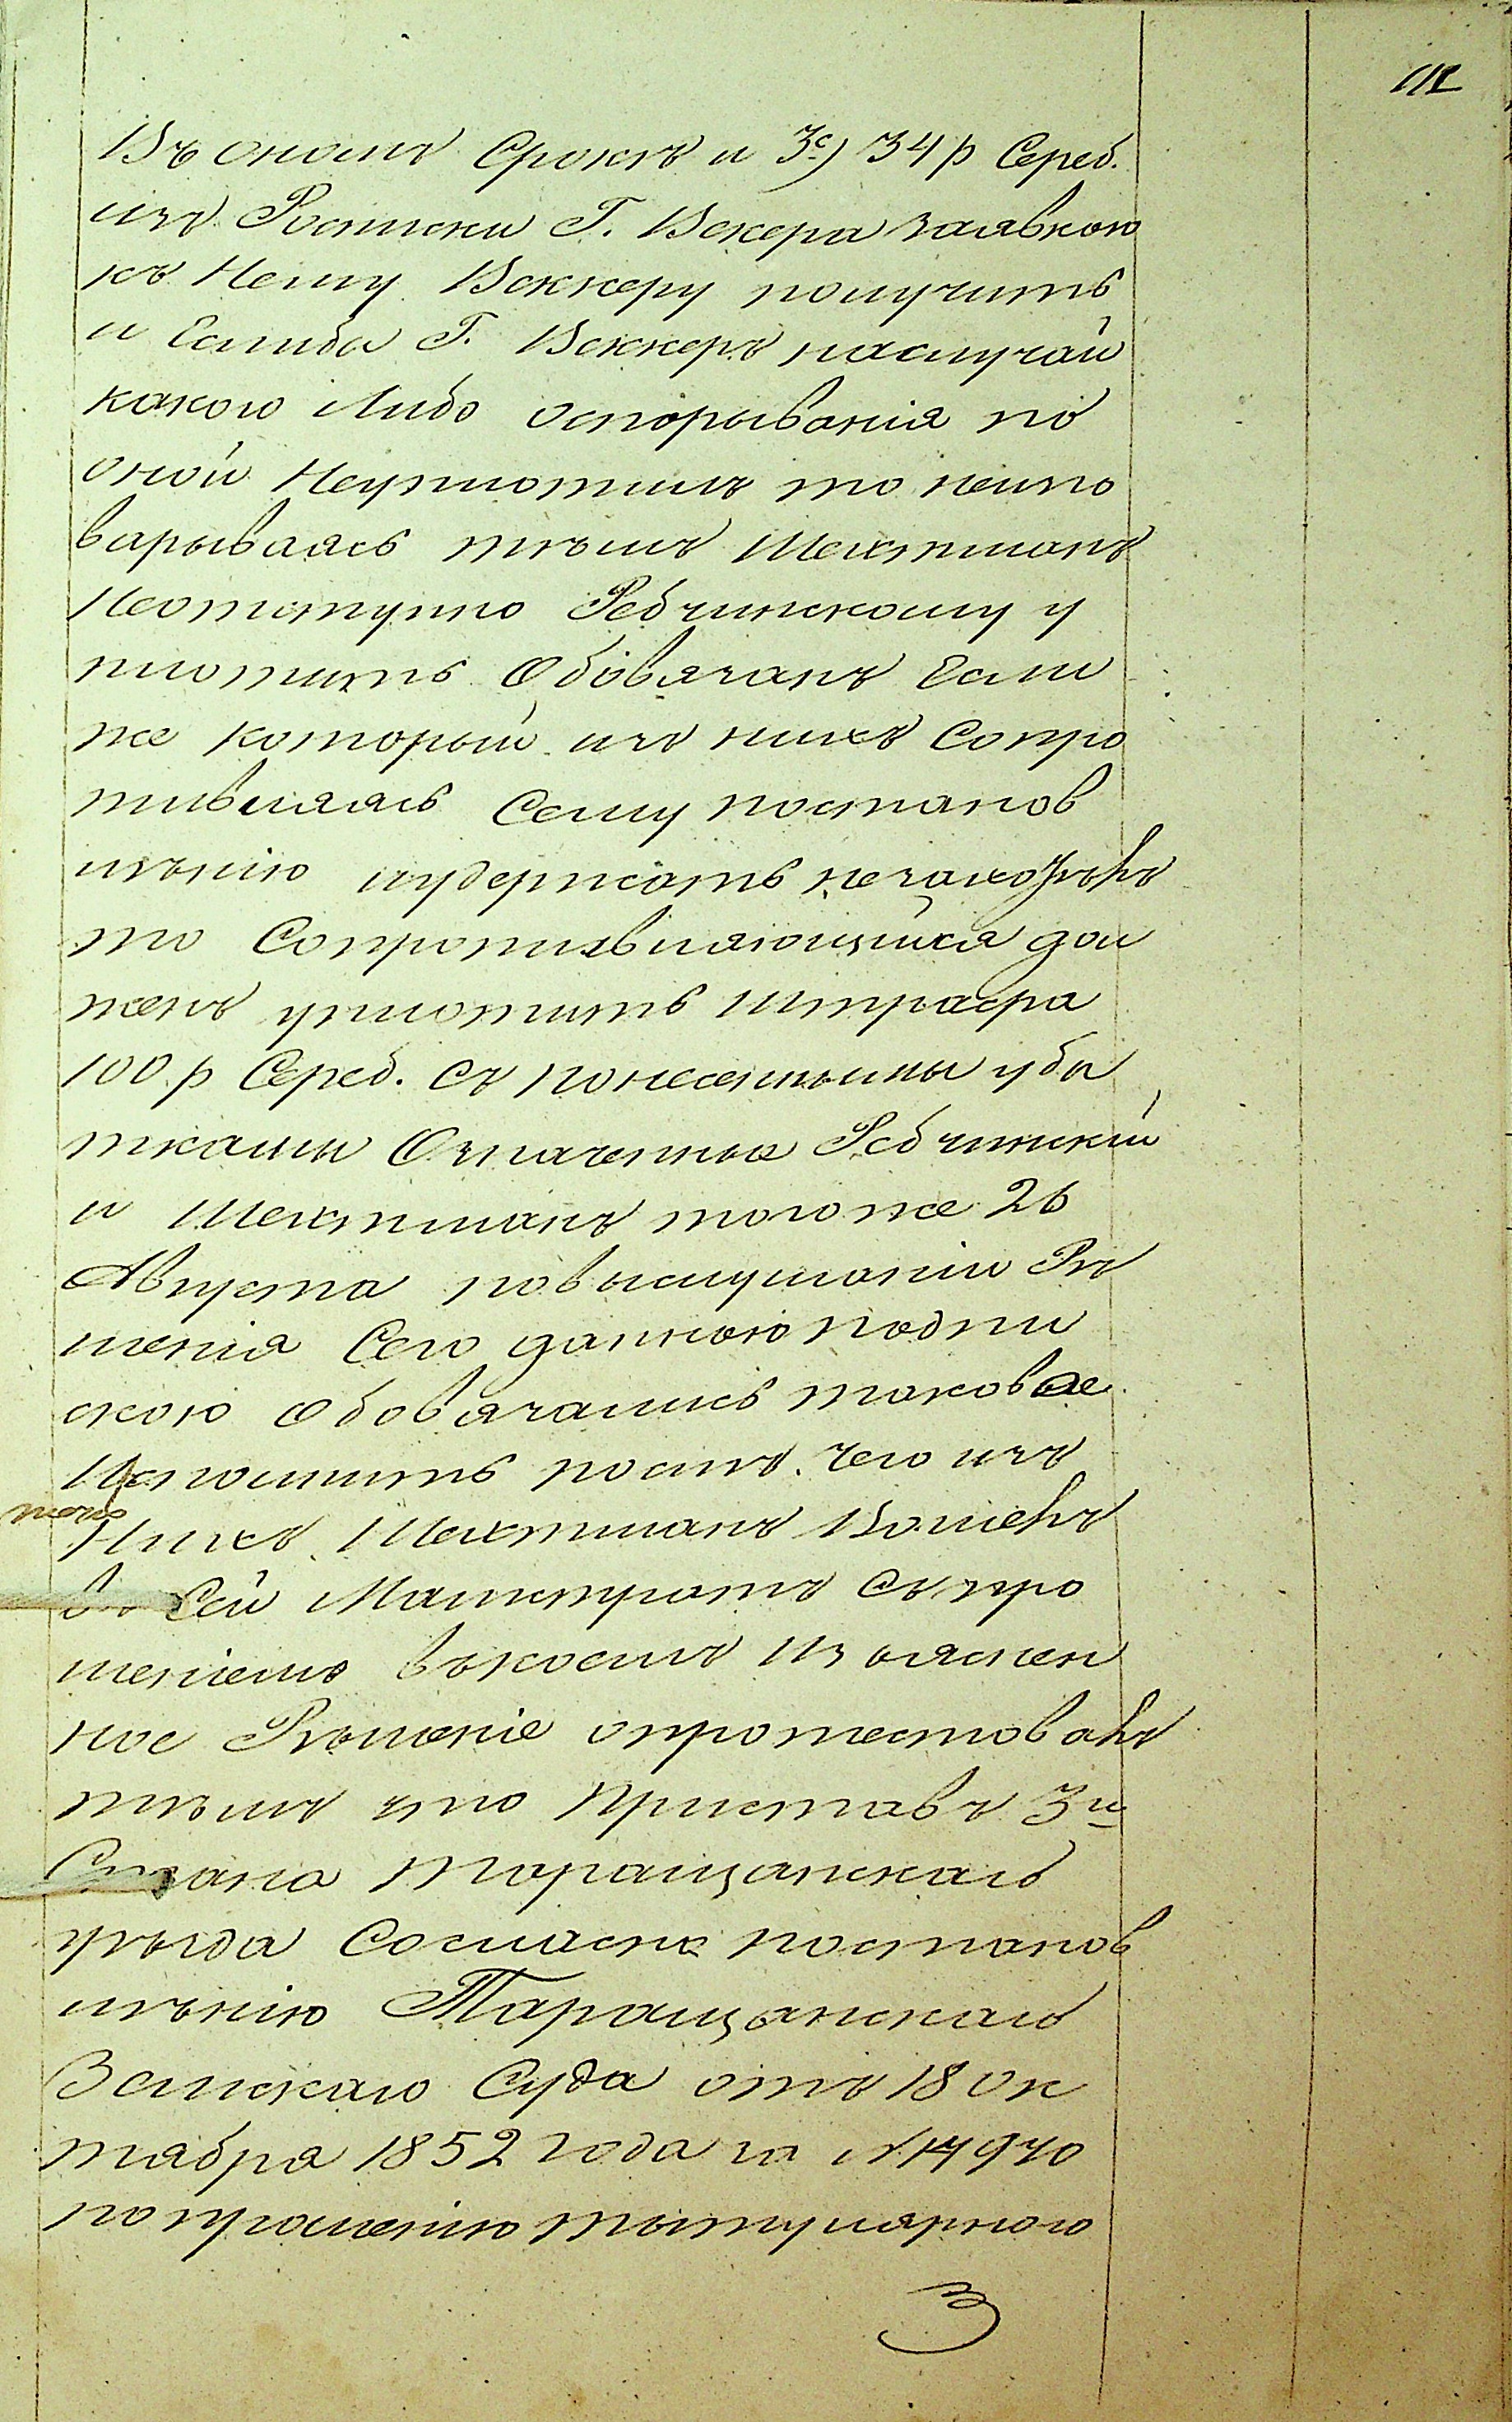 112
Въ ономъ Срокѣ и 3е) 34 р Сереб.
изъ Росписки Г. Векера заявкою
къ Нему Веккеру получить
и Еслиба Г. Веккеръ наслучай
какого Либо оспорыванія по
оной Неуплотилъ то неино
варываясь тѣмъ Шехтманъ
Неотступно Ребчинскому у
плотить Обовязанъ Если
же который изъ нихъ Сопро
тивляясь Сему постанов
лѣнію
то Сопротивляющійся дол
женъ уплотить штрафа
100 р Сереб. Съ понесенными убы
тками Означенные Ребчинскій
и Шехтманъ того же 26
Августа повыслушаніи Рѣ
шенія Сего данною подпи
скою Обовязались таковое
Исполнить послѣ чего изъ
Нихъ Шехтманъ Вошелъ
въ Сей Магистратъ Съ про
шеніемъ вькоемъ Изъяснен
ное Рѣшеніе опротестовалъ
тѣмъ что Приставъ 3го
Стана Таращанскаго
уѣзда Согласно постанов
лѣнію Таращанскаго
Земскаго Суда отъ 18 Ок
тября 1852 года за №
по прошенію титулярного